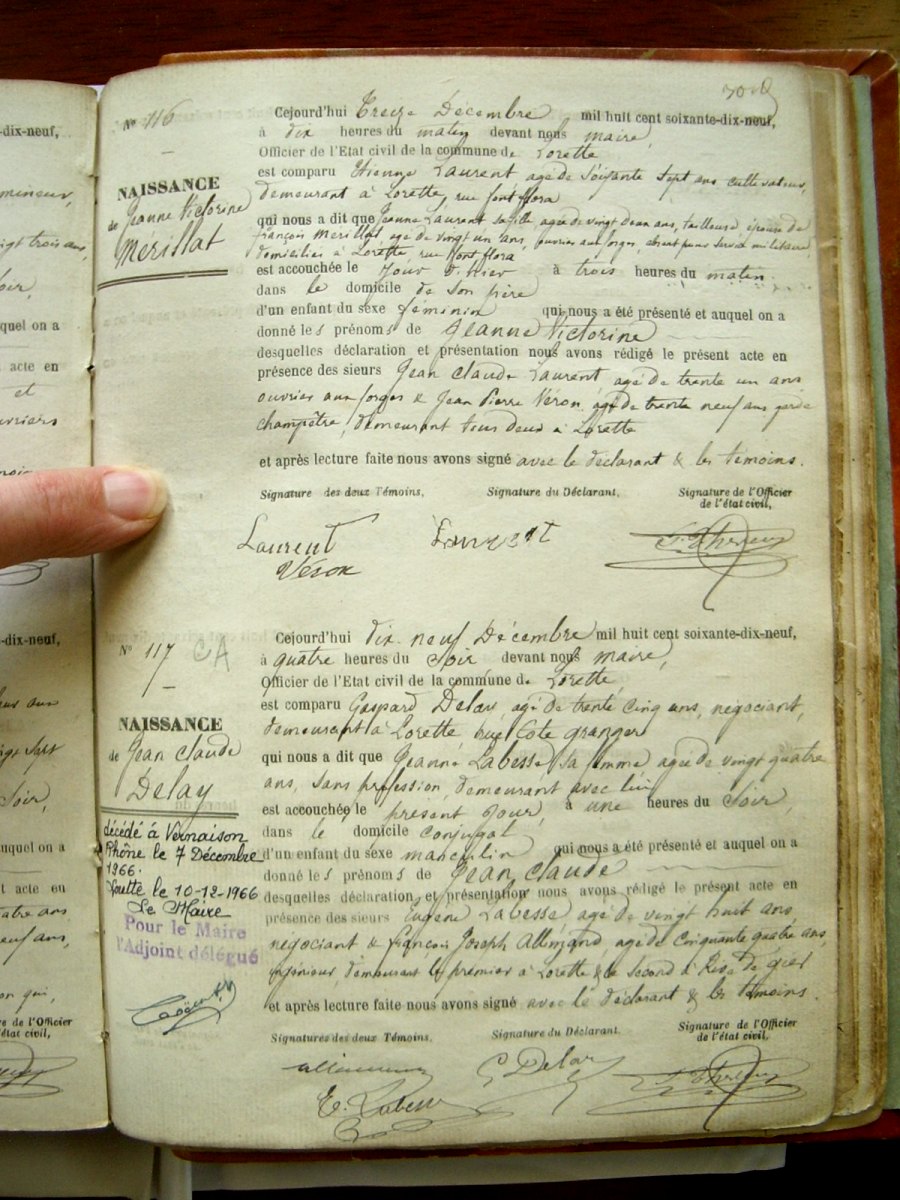 -dix-neuf,
mineur,
vingt trois ans,
Soir,
quel on a
acte en
et
ouvriers
-dix-neuf,
Sept
Soir,
auquel on a
acte en
quatre ans
neuf ans,
on qui,
re de l'Officier
état civil,
N° 116
NAISSANCE
de Jeanne Victorine
Merillat
Cejourd'hui Treize Décembre mil huit cent soixante-dix-neuf,
à dix heures du matin devant nous maire,
Officier de l'Etat civil de la commune de Lorette
est comparu Etienne Laurent agé de Soixante Sept ans cultivateur,
demeurant à Lorette, rue font flora
qui nous a dit que Jeanne Laurent sa fille agée de vingt deux ans, tailleuse, épouse de
François Merillat, agé de vingt un ans, ouvrier aux forges, absent pour Service militaire,
domiciliés à Lorette, rue Font flora
est accouchée le Jour d'hier à trois heures du matin
dans le domicile de Son père
d'un enfant du sexe féminin qui nous a été présenté et auquel on a
donné les prénoms de Jeanne Victorine
desquelles déclaration et présentation nous avons rédigé le présent acte en
présence des sieurs Jean Claude Laurent agé de trente un ans
ouvrier aux forges & Jean Pierre Véron agé de trente neuf ans garde
champêtre, demeurant tous deux à Lorette
et après lecture faite nous avons signé avec le déclarant & les témoins.
Signature des deux Témoins, Signature du Déclarant, Signature de l'Officier
de l'état civil,
Laurent Laurent
Véron
N° 117 CA
NAISSANCE
de Jean Claude
Delay
décédé à Vernaison
Rhône le 7 Décembre
1966.
Lorette le 10-12-1966
Le Maire
Pour le Maire
l'Adjoint délégué
Cejourd'hui dix neuf Décembre mil huit cent soixante-dix-neuf,
à quatre heures du Soir devant nous maire,
Officier de l'Etat civil de la commune de Lorette
est comparu Gaspard Delay agé de trente Cinq ans, négociant,
demeurant à Lorette, rue Côte granger
qui nous a dit que Jeanne Labesse sa femme agée de vingt quatre
ans, sans profession, demeurant avec lui
est accouchée le présent Jour, à une heures du Soir,
dans le domicile Conjugal
d'un enfant du sexe masculin qui nous a été présenté et auquel on a
donné les prénoms de Jean Claude
desquelles déclaration et présentation nous avons rédigé le présent acte en
présence des sieurs Eugène Labesse agé de vingt huit ans,
négociant & François Joseph Allimand, agé de Cinquante quatre ans,
ingénieur, demeurant le premier à Lorette & le Second à Rive de gier
et après lecture faite nous avons signé avec le déclarant & les témoins.
Signatures des deux Témoins, Signature du Déclarant. Signature de l'Officier
de l'état civil,
G Delay
E. Labesse